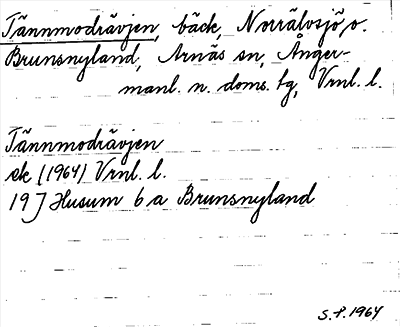 Tännmodrävjen, bäck, Norrälvsjö o.
Brunsnyland, Arnäs sn, Ånger-
manl. n. doms. tg, Vrnl. l.
Tännmodrävjen
ek (1964) Vrnl. l.
19 J Husum 6 a Brunsnyland
S.P. 1964